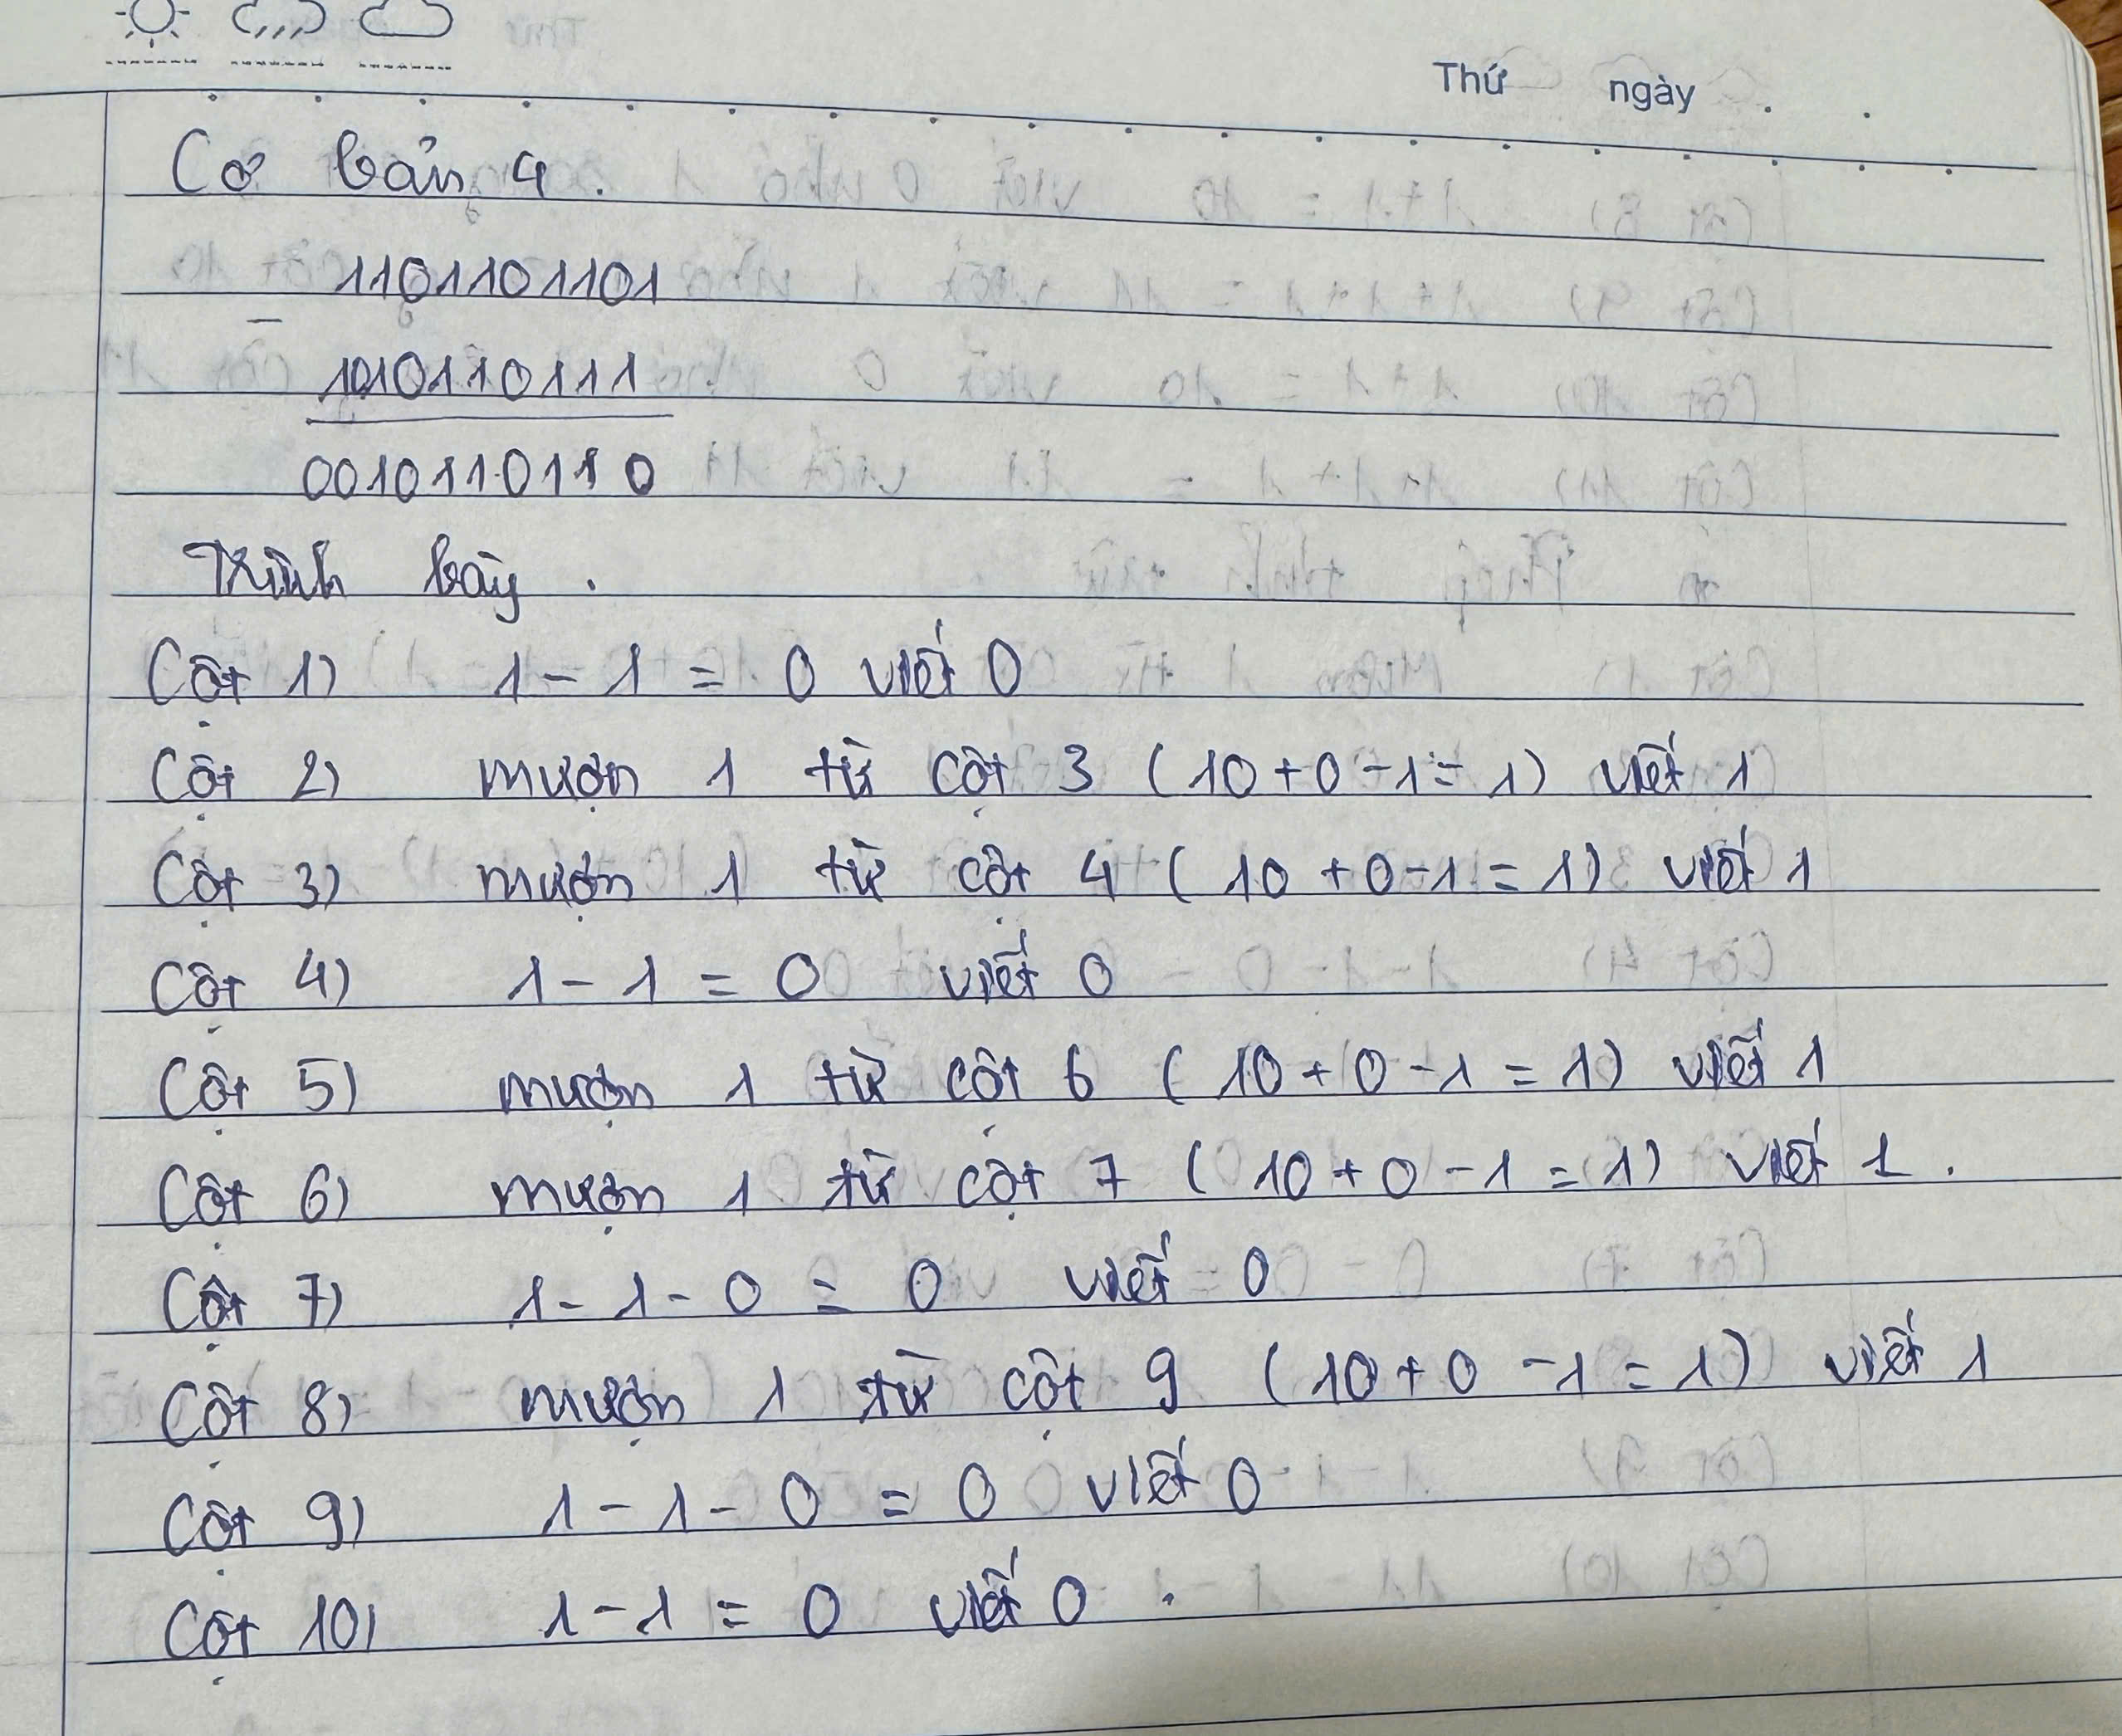 Thứ ngày
Cơ bản 4.
1101101101
-
1010110111
0010110110
Trình bày.
Cột 1) 1 - 1 = 0 viết 0
Cột 2) mượn 1 từ cột 3 (10 + 0 - 1 = 1) viết 1
Cột 3) mượn 1 từ cột 4 (10 + 0 - 1 = 1) viết 1
Cột 4) 1 - 1 = 0 viết 0
Cột 5) mượn 1 từ cột 6 (10 + 0 - 1 = 1) viết 1
Cột 6) mượn 1 từ cột 7 (10 + 0 - 1 = 1) viết 1.
Cột 7) 1 - 1 - 0 = 0 viết 0
Cột 8) mượn 1 từ cột 9 (10 + 0 - 1 = 1) viết 1
Cột 9) 1 - 1 - 0 = 0 viết 0
Cột 10) 1 - 1 = 0 viết 0.